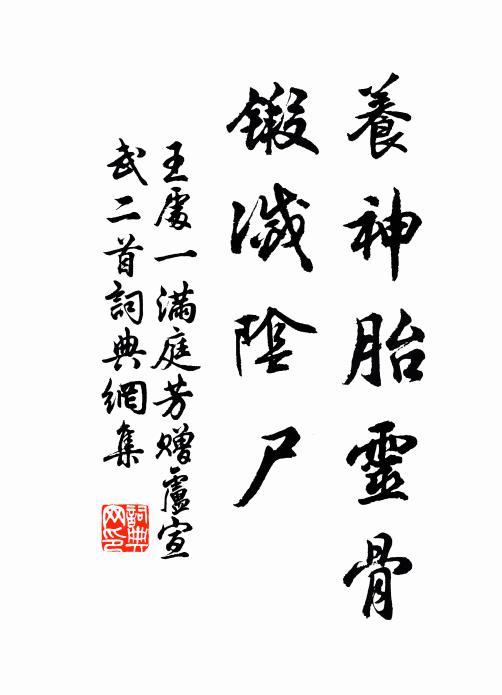 養神胎靈骨
鍛滅陰尸
王處一滿庭芳贈盧宣
武二首詞典網集
詞典
网印